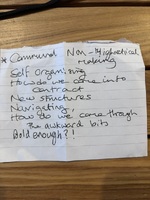 * Communal Non-Hierarchical
Making
Self Organising
How do we come into
contract
New structures
Navigating,
How do we come through
the awkward bits
Bold enough?!